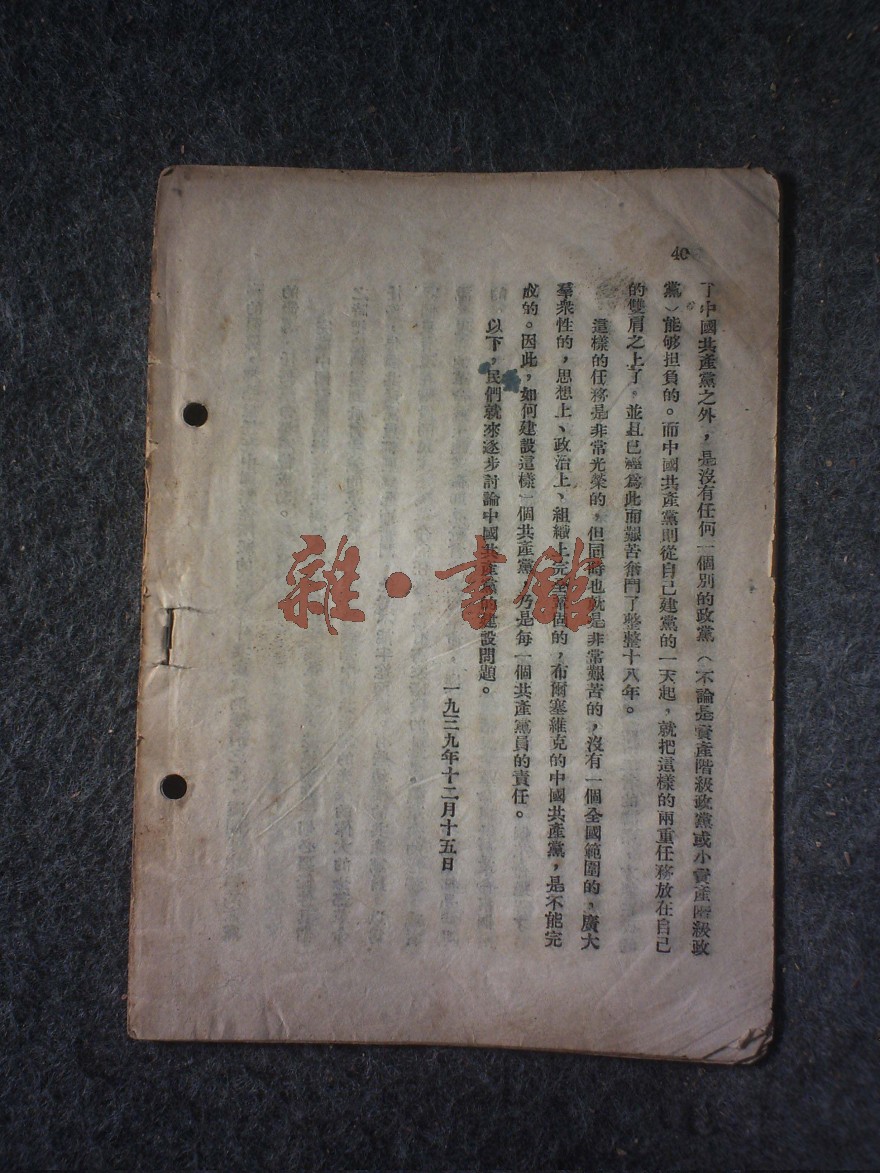 40
了中國共產黨之外，是沒有任何一個別的政黨（不論是資產階級政黨或小資產階級政
黨）能够担負的。而中國共產黨則從自己建黨的一天起，就把這樣的兩重任務放在自己
的雙肩之上了。並且已經爲此而艱苦奮鬥了整整十八年。
這樣的任務是非常光榮的，但同時也就是非常艱苦的，沒有一個全國範圍的，廣大
羣衆性的，思想上、政治上、組織上完全鞏固的，布爾塞維克的中國共產黨，是不能完
成的。因此，如何建設這樣一個共產黨，乃是每一個共產黨員的責任。
以下，民們就來逐步討論中國共產黨的建設問題。
一九三九年十二月十五日
雜·書館